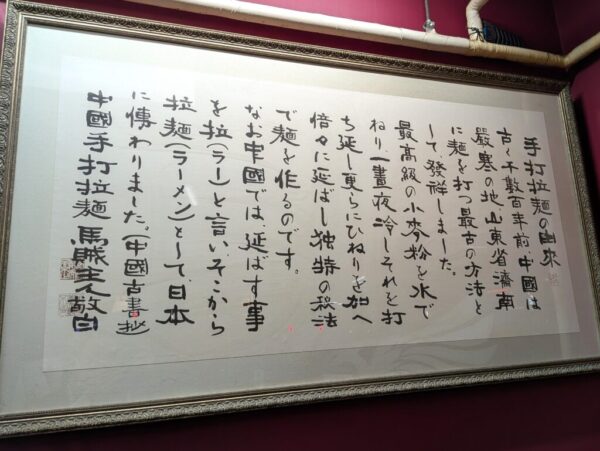 手打拉麺の由來
古く千数百年前、中國は
嚴寒の地山東省濟南
に麺を打つ最古の方法と
して、発祥しました。
最高級の小麥粉を水で
ねり一晝夜冷しそれを打
ち延し更らにひねりを加へ
倍々に延ばし独特の秘法
で麺を作るのです。
なお中國では、延ばす事
を拉(ラー)と言い、そこから
拉麺(ラーメン)として、日本
に傳わりました。(中國古書抄
中國手打拉麺 馬賊主人敬白